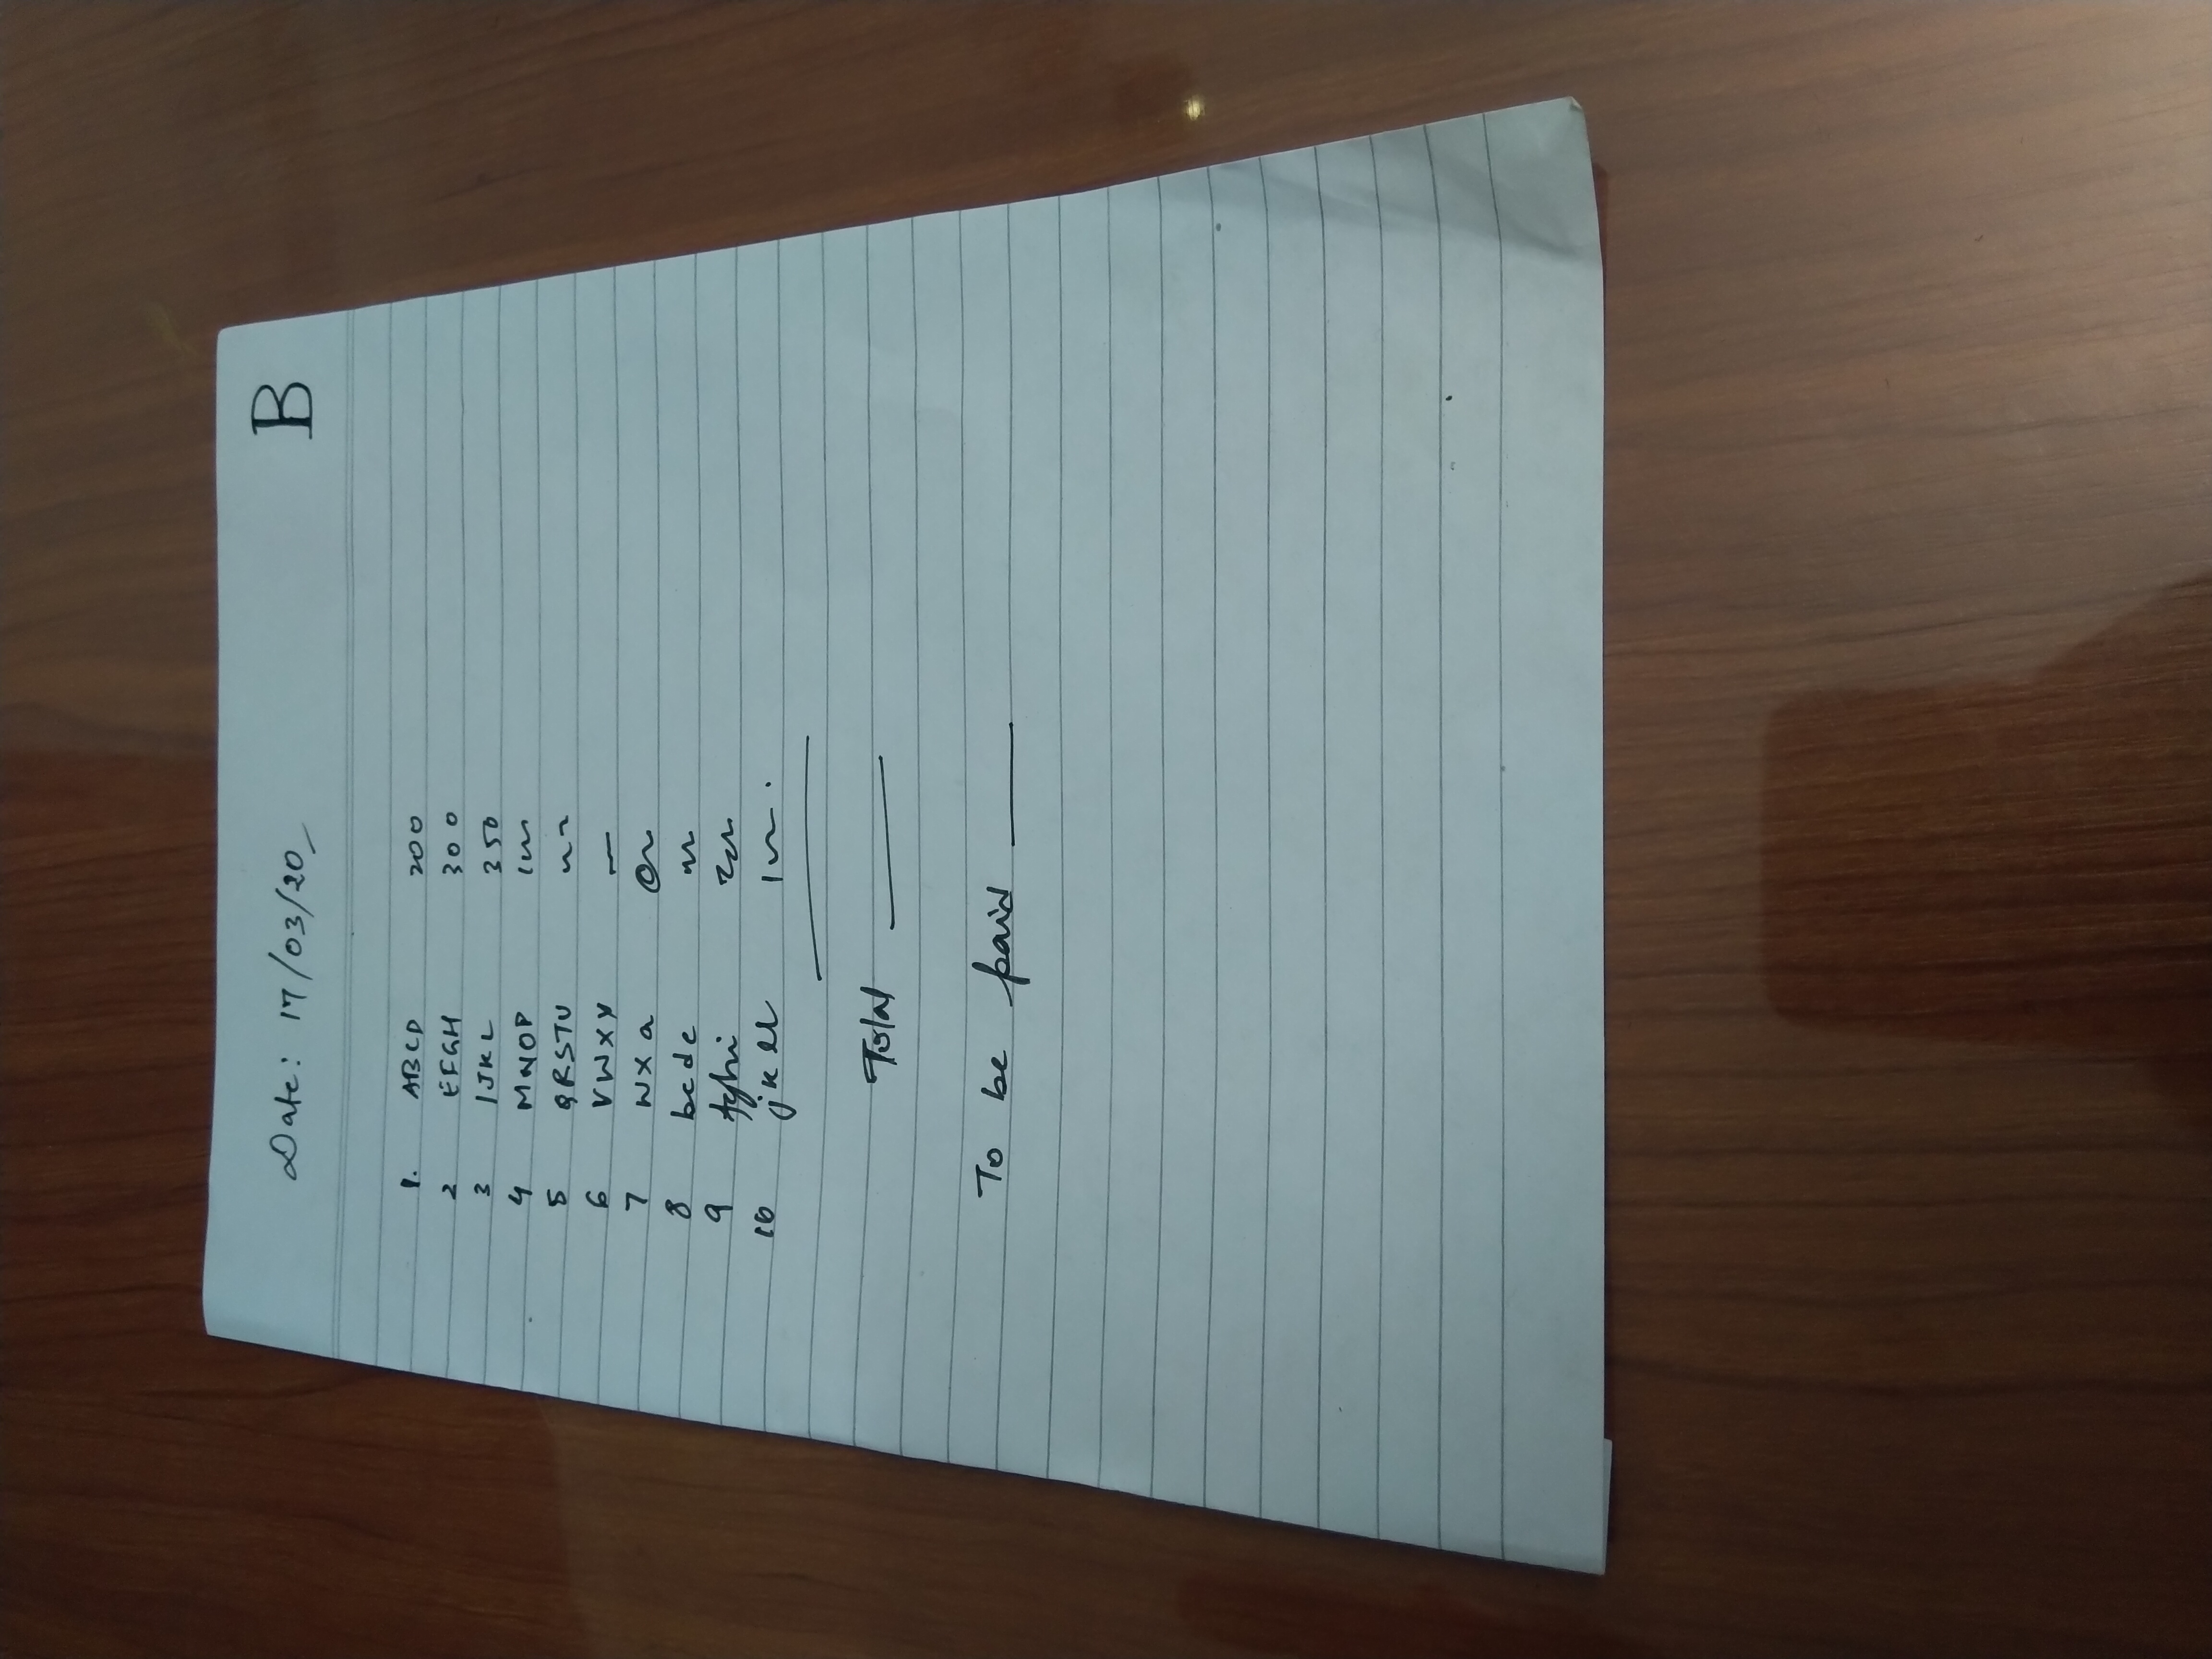 Date: 17/03/20 B
1. ABCD 200
2 EFGH 300
3 IJKL 350
4 MNOP
5 QRSTU
6 VWXY —
7 WXa
8 bcde
9 fghi
10
Total ____
To be paid ____